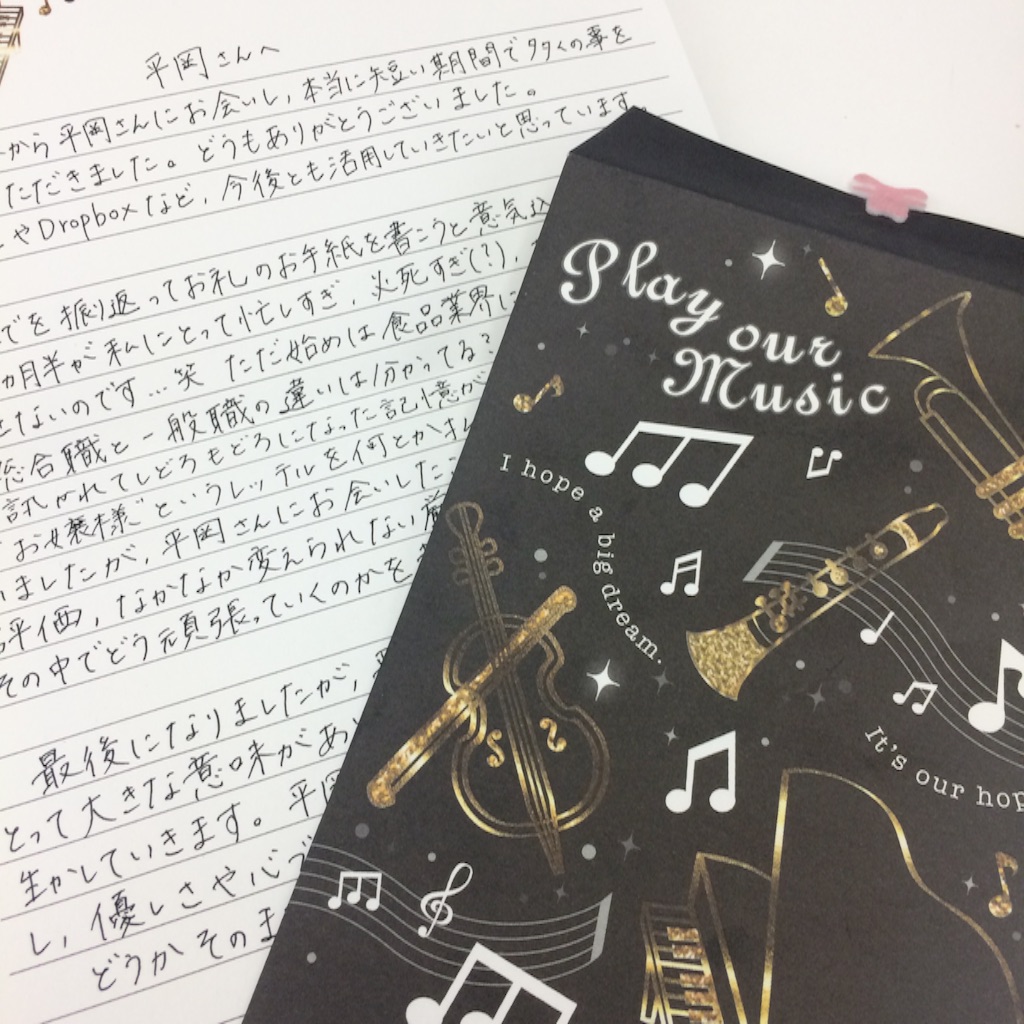 平岡さんへ
から平岡さんにお会いし、本当に短い期間で多くの事を
ただきました。どうもありがとうございました。
やDropboxなど、今後とも活用していきたいと思っています。
でを振り返ってお礼のお手紙を書こうと意気込
カ月半が私にとって忙しすぎ、必死すぎ(?)、
せないのです…笑 ただ始めは食品業界に
総合職と一般職の違いは分かってる?
訊かれてしどろもどろになった記憶が
お嬢様"というレッテルを何とか
いましたが、平岡さんにお会いした
評価、なかなか変えられない
その中でどう頑張っていくのかを
最後になりましたが、
とって大きな意味があ
生かしていきます。平岡
し、優しさや心
どうかそのま
Play our
Music
I hope a big dream.
It's our hop